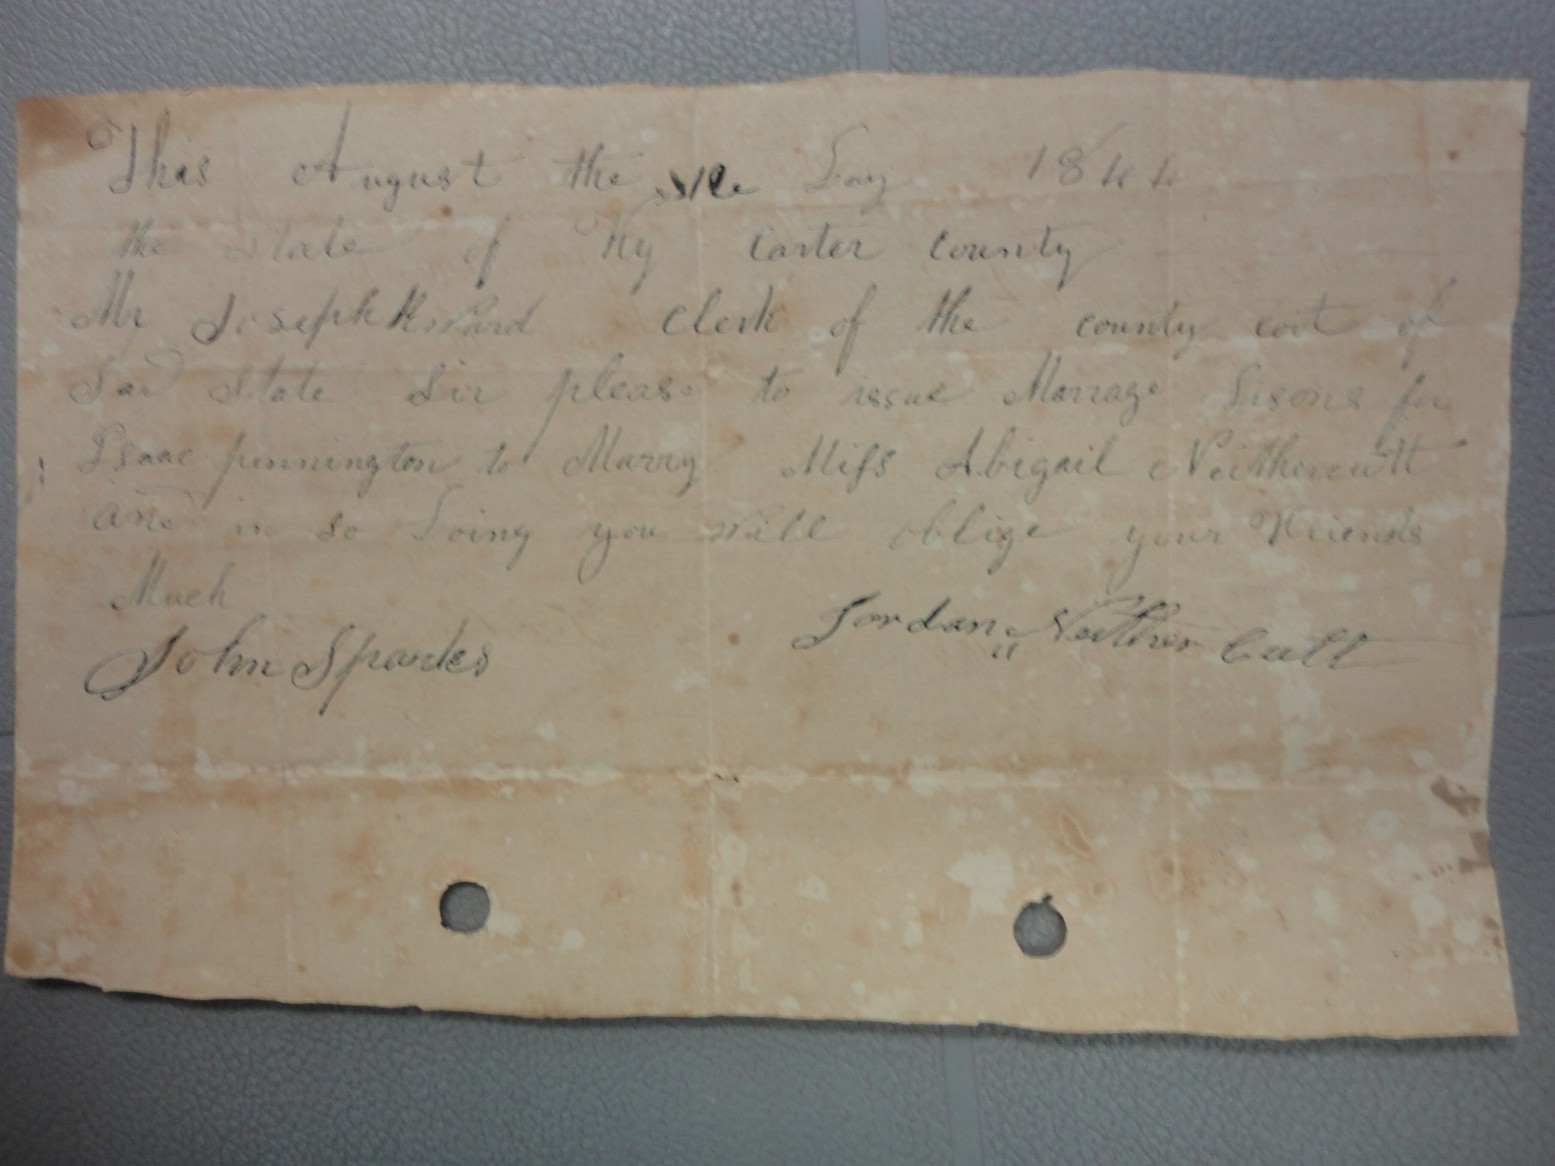 This August the Day 1844
the State of Ky Carter County
Mr Joseph K Ward Clerk of the county cort of
Sad State Sir please to issue Marrage Lisons for
Isaac pennington to Marry Miss Abigail Neithercutt
and in so Doing you will oblige your Friends
Much
John Sparks Jordan Neather Cutt